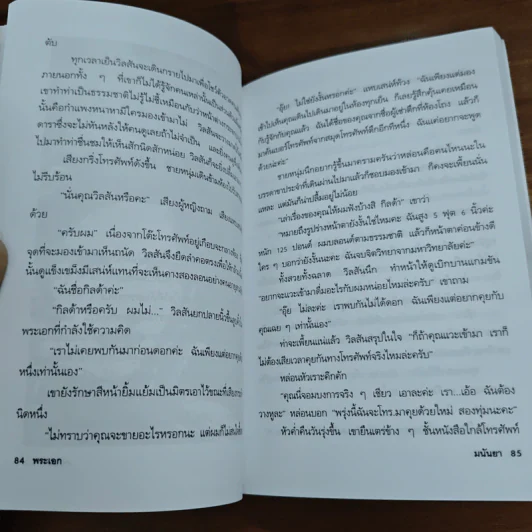 ดับ
ทุกเวลาเย็นวิลสันจะเดินกรายไปมาเพื่อโชว์ตัว
ภายนอกทั้ง ๆ ที่เขาก็ไม่ได้รู้จักคนเหล่านั้น
เขาทำท่าเป็นธรรมชาติไม่รู้ไม่ชี้เหมือนกับว่า
นั้นคือกำแพงหนาหามีใครมองเข้ามาไม่ วิลสัน
ดาราซึ่งจะไม่หันหลังให้คนดูเลยถ้าไม่จำเป็น
ไปมาทำท่าชื่นชมให้เห็นสักนิดสักหน่อย วิลสันก็จะ
เสียงกริ่งโทรศัพท์ดังขึ้น ชายหนุ่มเดินข้าม
ไม่รีบร้อน
"นั่นคุณวิลสันหรือคะ" เสียงผู้หญิงถาม
ด้วย
"ครับผม" เนื่องจากโต๊ะโทรศัพท์อยู่เกือบจะ
จุดที่จะมองเข้ามาเห็นถนัด วิลสันจึงยืดลำคอตรงเพื่อให้
นั้นดูแข็งเขม็งมีเสน่ห์แทนที่จะเห็นคางสองลอน
"ฉันชื่อกิลด้าค่ะ"
"กิลด้าหรือครับ ผมไม่..." วิลสันยกปลายนิ้วขึ้น
พระเอกที่กำลังใช้ความคิด
"เราไม่เคยพบกันมาก่อนดอกค่ะ ฉันเพียงแต่อยาก
หนึ่งเท่านั้นเอง"
เขายังรักษาสีหน้ายิ้มแย้มเป็นมิตรเอาไว้ขณะที่เสียง
นิดหนึ่ง
"ไม่ทราบว่าคุณจะขายอะไรหรอกนะ แต่ผมก็ไม่สนใจ
84 พระเอก
"อุ๊ย ไม่ใช่ยังงั้นหรอกค่ะ" แทบเสนห์ท้วง "ฉันเพียงแต่มอง
เข้าไปเห็นคุณเดินไปเดินมาอยู่ในห้องทุกเย็น ก็เลยรู้สึกคุ้นเคยเหมือน
กับรู้จักกับคุณแล้ว ฉันได้ชื่อของคุณจากชื่อผู้เช่าตึกที่ห้องโถง แล้วก็
มาค้นเบอร์โทรศัพท์จากสมุดโทรศัพท์ตึกอีกทีหนึ่ง ฉันแค่อยากจะพูด
ด้วยน่ะค่ะ"
ชายหนุ่มนึกอยากรู้ขึ้นมาครามครันว่าหล่อนคือคนไหนนะใน
บรรดาขาประจำที่เดินผ่านไปมาแล้วก็ชอบมองเข้ามา ก็คงจะเพี้ยนนั่น
แหละ แต่มันก็น่าปลื้มอยู่ไม่น้อย
"เล่าเรื่องของคุณให้ผมฟังบ้างสิ กิลด้า" เขาว่า
"หมายถึงรูปร่างหน้าตายังงั้นใช่ไหมคะ ฉันสูง 5 ฟุต 6 นิ้วค่ะ
หนัก 125 ปอนด์ ผมบลอนด์ตามธรรมชาติ แล้วก็หน้าตาค่อนข้างดี
ใคร ๆ บอกว่ายังงั้นนะคะ ฉันจบจิตวิทยาจากมหาวิทยาลัยค่ะ"
ทั้งสวยทั้งฉลาด วิลสันนึก ทำหน้าให้ดูเบิกบานแกมขัน
"อยากจะแวะเข้ามาดื่มอะไรกับผมหน่อยไหมล่ะครับ" เขาถาม
"อุ๊ย ไม่ละค่ะ เราพบกันไม่ได้ดอก ฉันเพียงแต่อยากคุยกับ
คุณเฉย ๆ เท่านั้นเอง"
ท่าจะเพี้ยนแน่แล้ว วิลสันสรุปในใจ "ก็ถ้าคุณแวะเข้ามา เราก็
ไม่ต้องเสียเวลาคุยกันทางโทรศัพท์จริงไหมล่ะครับ"
หล่อนหัวเราะคิกคัก
"คุณนี่จอมบงการจริง ๆ เชียว เอาละค่ะ เรา...เอ้อ ฉันต้อง
วางหูละ" หล่อนบอก "พรุ่งนี้ฉันจะโทร.มาคุยด้วยใหม่ สองทุ่มนะคะ"
หัวค่ำคืนวันรุ่งขึ้น เขายืนแตร่ข้าง ๆ ชั้นหนังสือใกล้โทรศัพท์
มนันยา 85